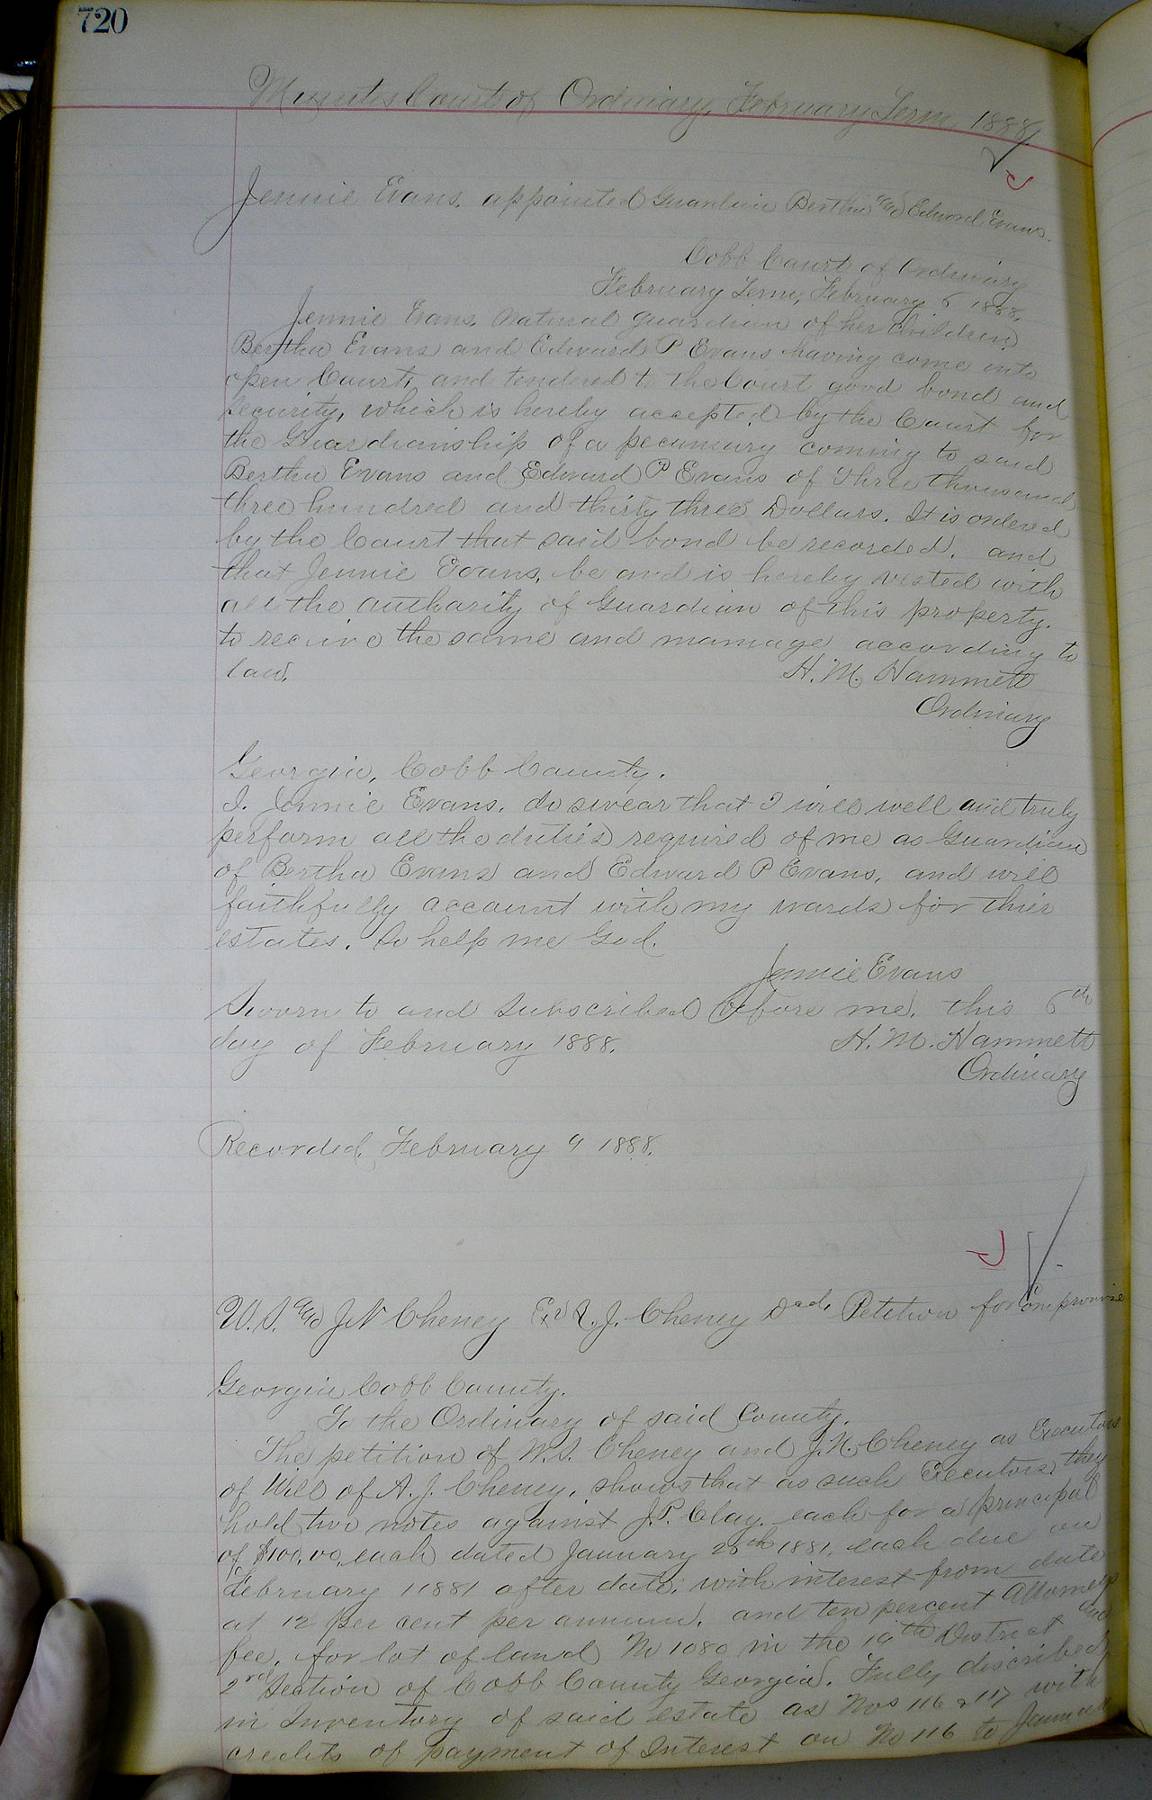 720
Minutes Court of Ordinary, February Term 1888
Jennie Evans, appointed Guardian Bertha and Edward Evans.
Cobb Court of Ordinary
February Term, February 6 1888.
Jennie Evans, natural guardian of her children
Bertha Evans and Edward P Evans having come into
open Court, and tendered to the Court good bond and
security, which is hereby accepted by the Court for
the Guardianship of a pecuniary coming to said
Bertha Evans and Edward P Evans of three thousand
three hundred and thirty three Dollars. It is ordered
by the Court that said bond be recorded. and
that Jennie Evans, be and is hereby vested with
all the authority of Guardian of this property.
to receive the same and manage according to
law.
H. M. Hammett
Ordinary
Georgia, Cobb County.
I. Jennie Evans. do swear that I will well and truly
perform all the duties required of me as Guardian
of Bertha Evans and Edward P Evans, and will
faithfully account with my wards for thier
estates. So help me God.
Jennie Evans
Sworn to and subscribed before me, this 6th
day of February 1888.
H. M. Hammett
Ordinary
Recorded, February 9 1888.
W. S. and J N Cheney Exr A. J. Cheney Decd. Petition for Compromise
Georgia Cobb County.
To the Ordinary of said County.
The petition of W. S. Cheney and J. N. Cheney as Executors
of Will of A. J. Cheney, shows that as such Executors they
hold two notes against J. P. Clay. each for a principal
of $100.00, each dated January 25th 1881, each due on
February 1 1881 after date, with interest from date
at 12 per cent per annum. and ten percent Attorneys
fee, for lot of land No 1080 in the 19th District and
2nd Section of Cobb County Georgia. Fully described
in Inventory of said estate as Nos 116 & 117 with
credits of payment of Interest on No 116 to